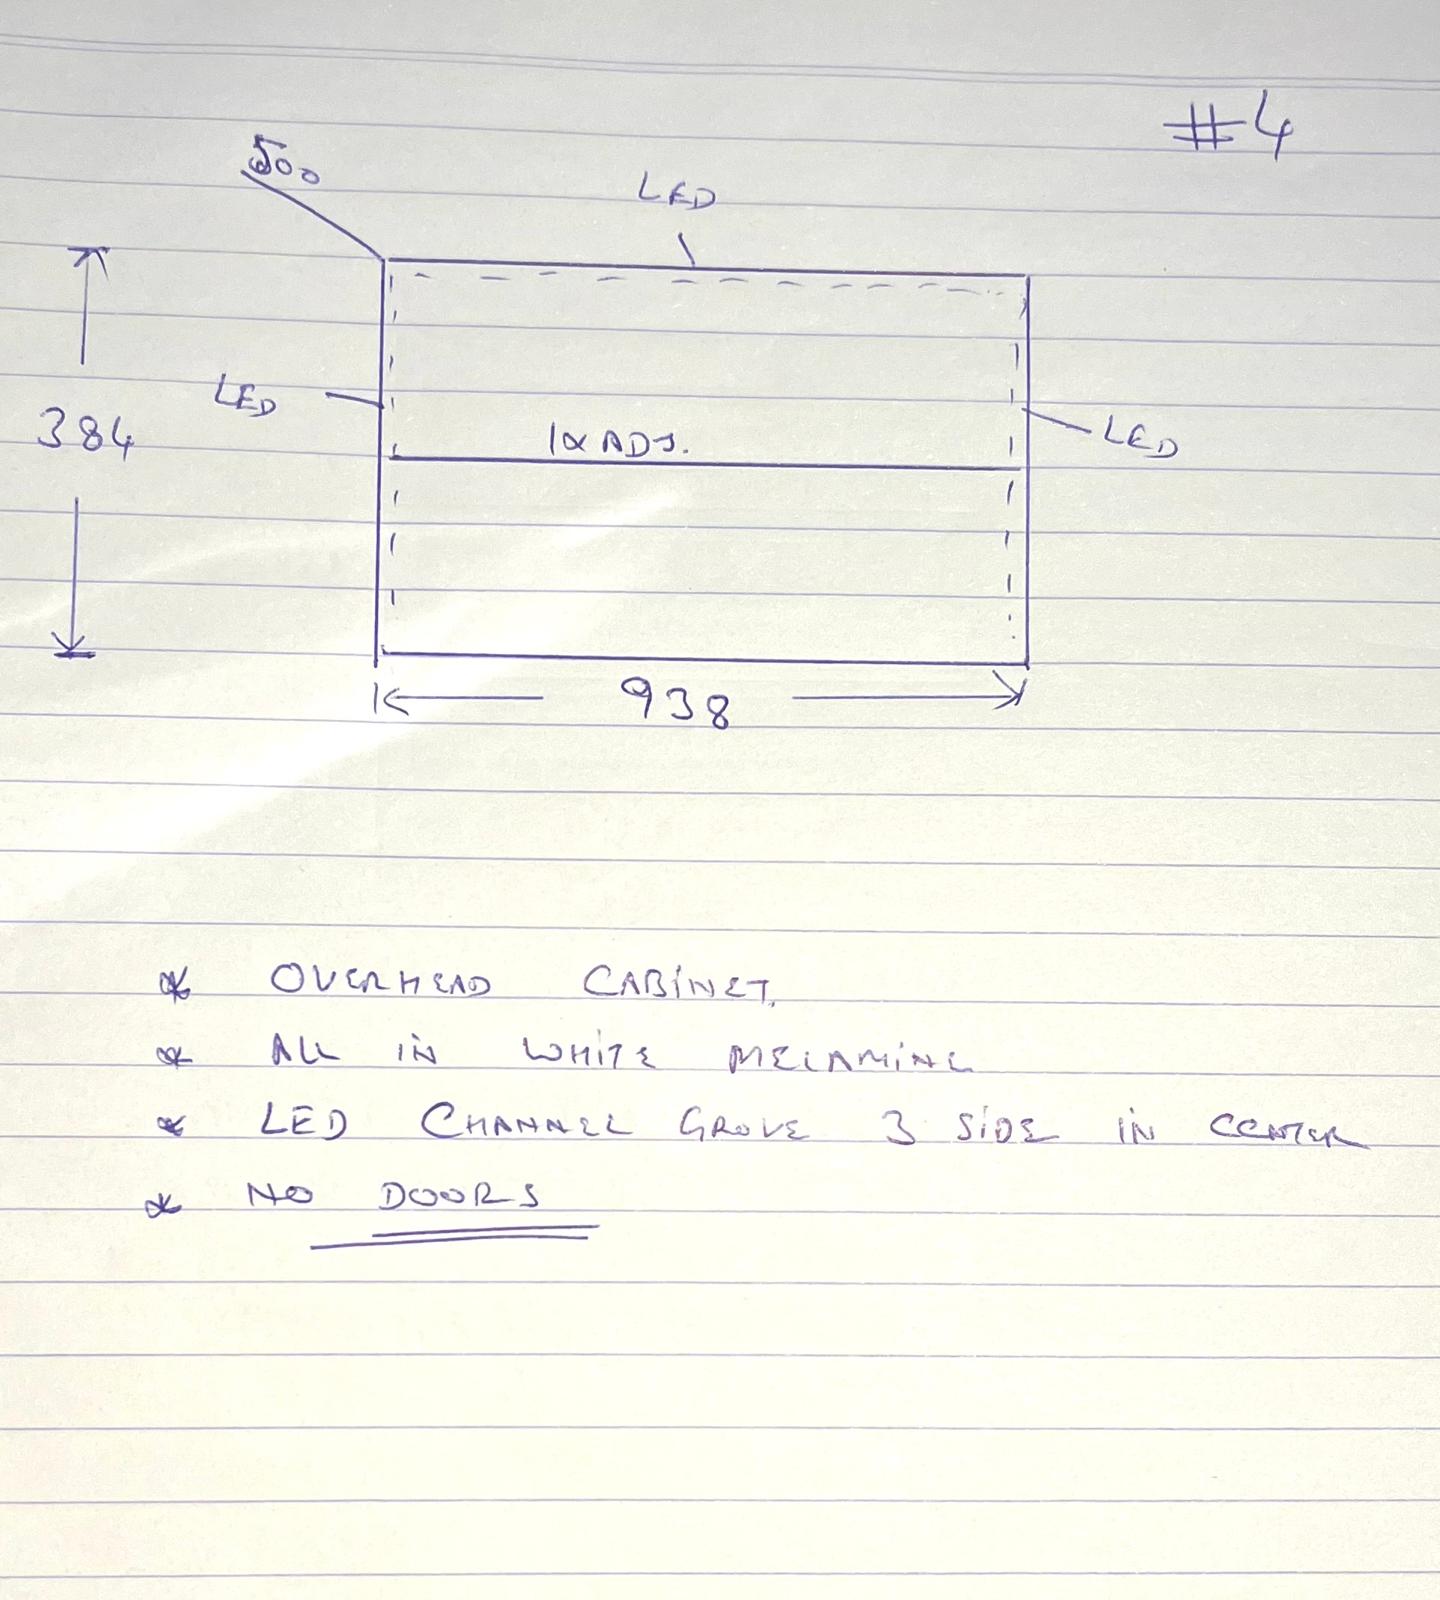 #4
500
LED
384
LED
1x ADJ.
LED
938
* OVERHEAD CABINET.
* ALL IN WHITE MELAMINE
* LED CHANNEL GROVE 3 SIDE IN CENTER
* NO DOORS